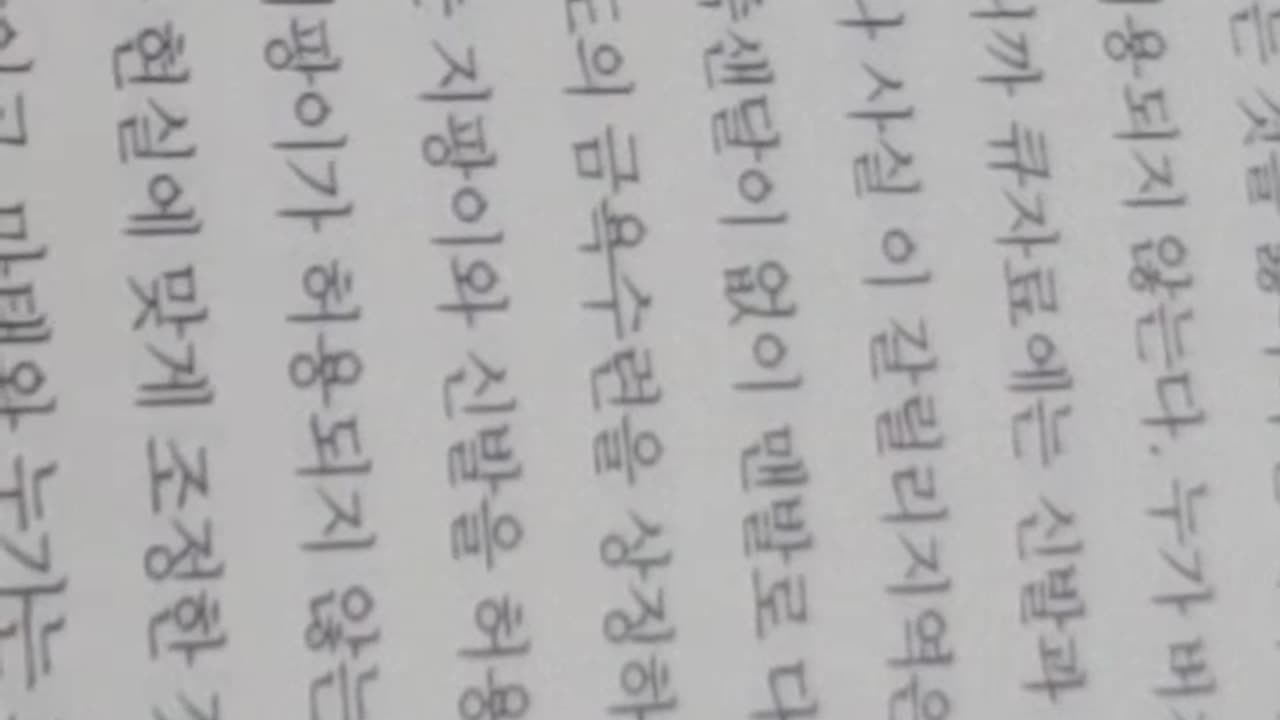 은 것을
용되지 않는다. 누가 버
까 큐자료에는 신발과
나 사실 이 갈릴리지역은
센달이 없이 맨발로 다
도의 금욕수련을 상정하
지팡이와 신발을 허용
팡이가 허용되지 않는
현실에 맞게 조정한
마태와 누가는